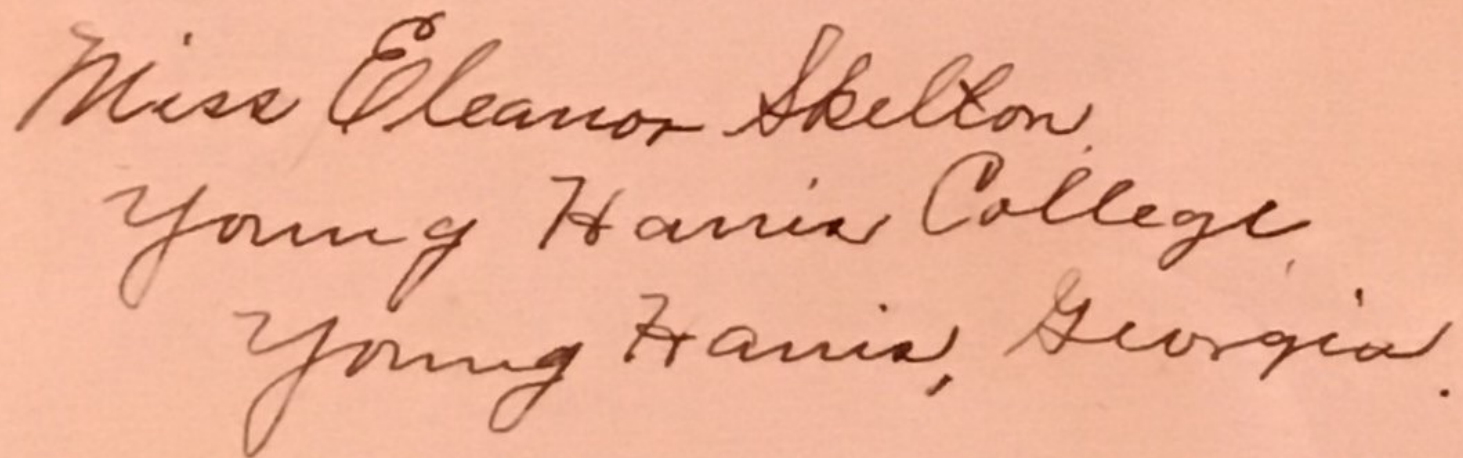 Miss Eleanor Skelton
Young Harris College
Young Harris, Georgia.